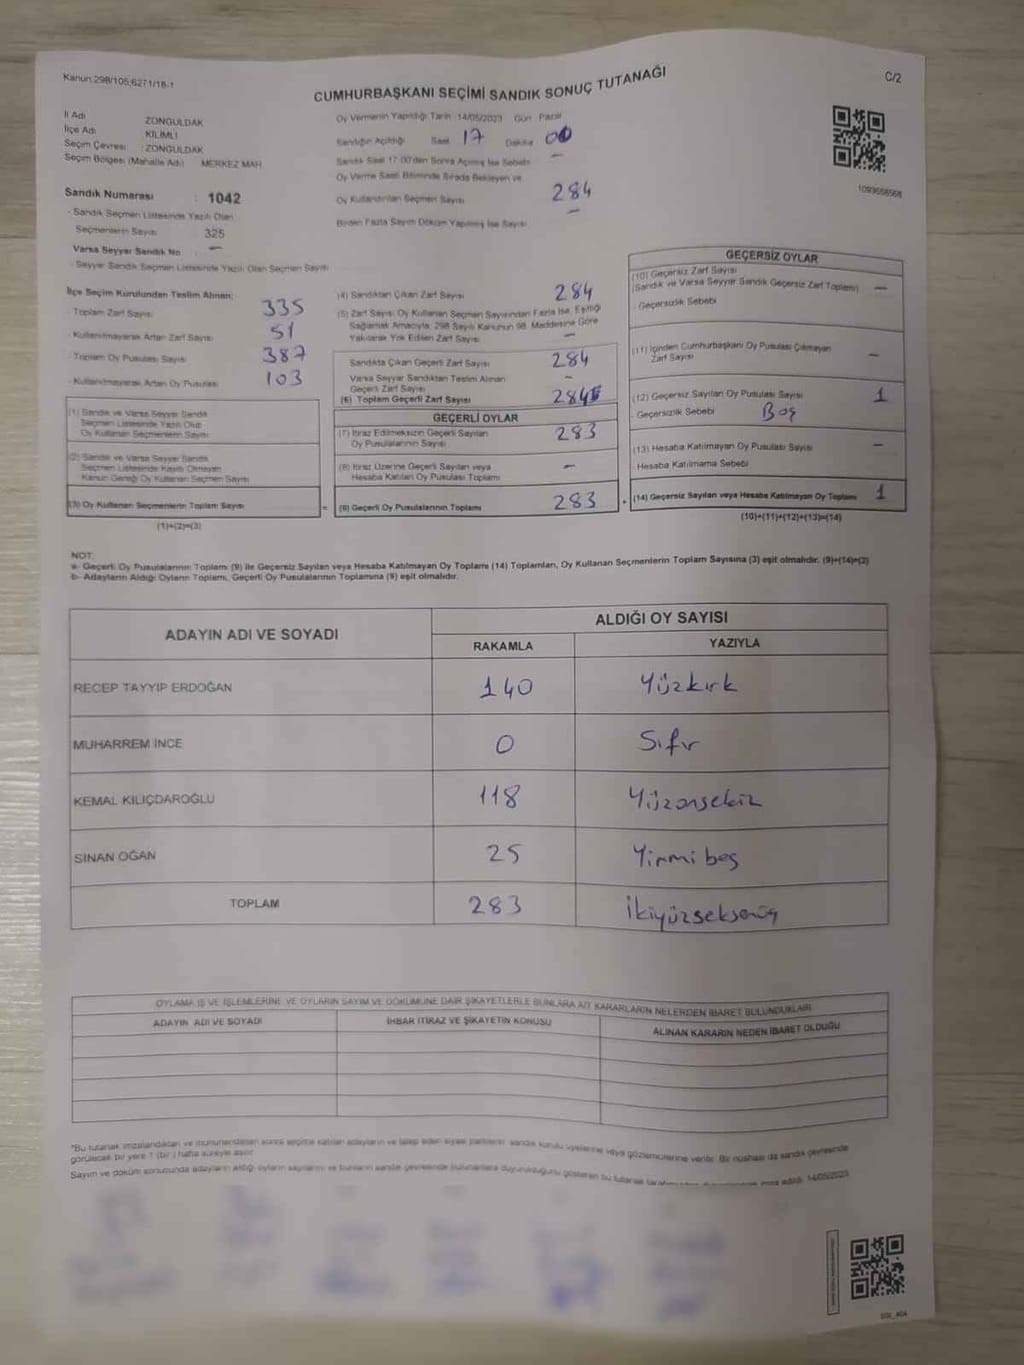 Kanun:298/105;6271/18-1
C/2
CUMHURBAŞKANI SEÇİMİ SANDIK SONUÇ TUTANAĞI
İl Adı ZONGULDAK
İlçe Adı KİLİMLİ
Seçim Çevresi : ZONGULDAK
Seçim Bölgesi (Mahalle Adı) MERKEZ MAH
Sandık Numarası : 1042
- Sandık Seçmen Listesinde Yazılı Olan
Seçmenlerin Sayısı 325
Varsa Seyyar Sandık No —
- Seyyar Sandık Seçmen Listesinde Yazılı Olan Seçmen Sayısı
Oy Vermenin Yapıldığı Tarih 14/05/2023 Gün Pazar
Sandığın Açıldığı Saat 17 Dakika 00
Sandık Saat 17:00'den Sonra Açılmış İse Sebebi —
Oy Verme Saati Bitiminde Sırada Bekleyen ve
Oy Kullandırılan Seçmen Sayısı 284
Birden Fazla Sayım Döküm Yapılmış İse Sayısı —
1093668568
İlçe Seçim Kurulundan Teslim Alınan:
Toplam Zarf Sayısı 335
- Kullanılmayarak Artan Zarf Sayısı 51
- Toplam Oy Pusulası Sayısı 387
- Kullanılmayarak Artan Oy Pusulası 103
(1) Sandık ve Varsa Seyyar Sandık
Seçmen Listesinde Yazılı Olup
Oy Kullanan Seçmenlerin Sayısı
(2) Sandık ve Varsa Seyyar Sandık
Seçmen Listesinde Kayıtlı Olmayan
Kanun Gereği Oy Kullanan Seçmen Sayısı
(3) Oy Kullanan Seçmenlerin Toplam Sayısı
(1)+(2)=(3)
(4) Sandıktan Çıkan Zarf Sayısı 284
(5) Zarf Sayısı Oy Kullanan Seçmen Sayısından Fazla İse, Eşitliği
Sağlamak Amacıyla, 298 Sayılı Kanunun 98. Maddesine Göre
Yakılarak Yok Edilen Zarf Sayısı —
Sandıkta Çıkan Geçerli Zarf Sayısı 284
Varsa Seyyar Sandıktan Teslim Alınan
Geçerli Zarf Sayısı —
(6) Toplam Geçerli Zarf Sayısı 284
GEÇERLİ OYLAR
(7) İtiraz Edilmeksizin Geçerli Sayılan
Oy Pusulalarının Sayısı 283
(8) İtiraz Üzerine Geçerli Sayılan veya
Hesaba Katılan Oy Pusulası Toplamı —
= (9) Geçerli Oy Pusulalarının Toplamı 283
GEÇERSİZ OYLAR
(10) Geçersiz Zarf Sayısı
(Sandık ve Varsa Seyyar Sandık Geçersiz Zarf Toplamı) —
- Geçersizlik Sebebi
(11) İçinden Cumhurbaşkanı Oy Pusulası Çıkmayan
Zarf Sayısı —
(12) Geçersiz Sayılan Oy Pusulası Sayısı 1
- Geçersizlik Sebebi Boş
(13) Hesaba Katılmayan Oy Pusulası Sayısı —
Hesaba Katılmama Sebebi
+ (14) Geçersiz Sayılan veya Hesaba Katılmayan Oy Toplamı 1
(10)+(11)+(12)+(13)=(14)
NOT:
a- Geçerli Oy Pusulalarının Toplam (9) ile Geçersiz Sayılan veya Hesaba Katılmayan Oy Toplamı (14) Toplamları, Oy Kullanan Seçmenlerin Toplam Sayısına (3) eşit olmalıdır. (9)+(14)=(3)
b- Adayların Aldığı Oyların Toplamı, Geçerli Oy Pusulalarının Toplamına (9) eşit olmalıdır.
ADAYIN ADI VE SOYADI
ALDIĞI OY SAYISI
RAKAMLA YAZIYLA
RECEP TAYYİP ERDOĞAN 140 Yüzkırk
MUHARREM İNCE 0 Sıfır
KEMAL KILIÇDAROĞLU 118 Yüzonsekiz
SİNAN OĞAN 25 Yirmibeş
TOPLAM 283 İkiyüzseksenüç
OYLAMA İŞ VE İŞLEMLERİNE VE OYLARIN SAYIM VE DÖKÜMÜNE DAİR ŞİKAYETLERLE BUNLARA AİT KARARLARIN NELERDEN İBARET BULUNDUKLARI
ADAYIN ADI VE SOYADI
İHBAR İTİRAZ VE ŞİKAYETİN KONUSU
ALINAN KARARIN NEDEN İBARET OLDUĞU
*Bu tutanak imzalandıktan ve mühürlendikten sonra seçime katılan adayların ve talep eden siyasi partilerin sandık kurulu üyelerine veya gözlemcilerine verilir. Bir nüshası da sandık çevresinde
görülecek bir yere 1 (bir) hafta süreyle asılır.
Sayım ve döküm sonucunda adayların aldığı oyların sayılarını ve bunların sandık çevresinde bulunanlara duyurulduğunu gösteren bu tutanak tarafımızdan imza edildi. 14/05/2023